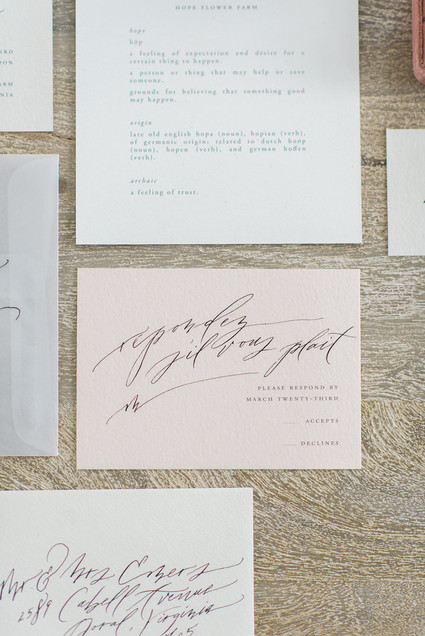 HOPE FLOWER FARM
hope
hōp
a feeling of expectation and desire for a
certain thing to happen.
a person or thing that may help or save
someone.
grounds for believing that something good
may happen.
origin
late old english hopa (noun), hopian (verb),
of germanic origin; related to dutch hoop
(noun), hopen (verb), and german hoffen
(verb).
archaic
a feeling of trust.
repondez
s'il vous plait
M
PLEASE RESPOND BY
MARCH TWENTY-THIRD
ACCEPTS
DECLINES
Mr & Mrs
2589
Virginia